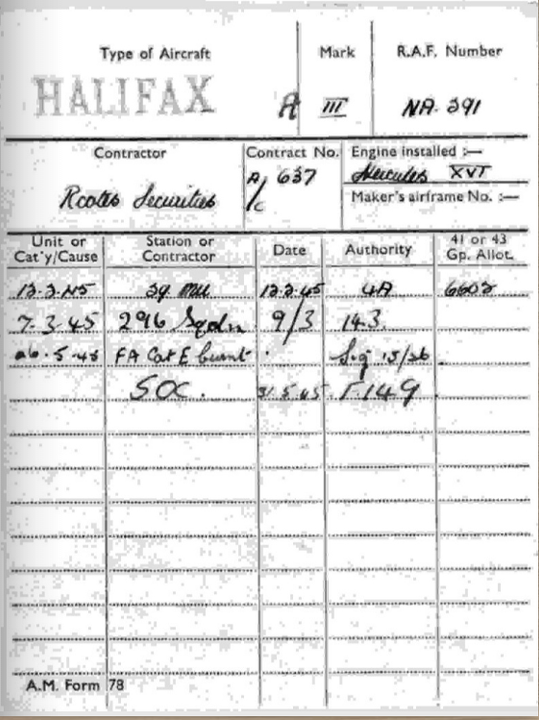 Type of Aircraft Mark R.A.F. Number
HALIFAX A III NA. 291
Contractor Contract No. Engine installed :—
A/c 637 Hercules XVI
Rootes Securities Maker's airframe No. :—
Unit or Cat'y/Cause Station or Contractor Date Authority 41 or 43 Gp. Allot.
12-2-45 29 MU 12.2.45 4A 6602
7-3-45 296 Sqdn 9/3 143
26-5-45 FA Cat E burnt Sig 15/26
SOC. 31.5.45 F.149
A.M. Form 78